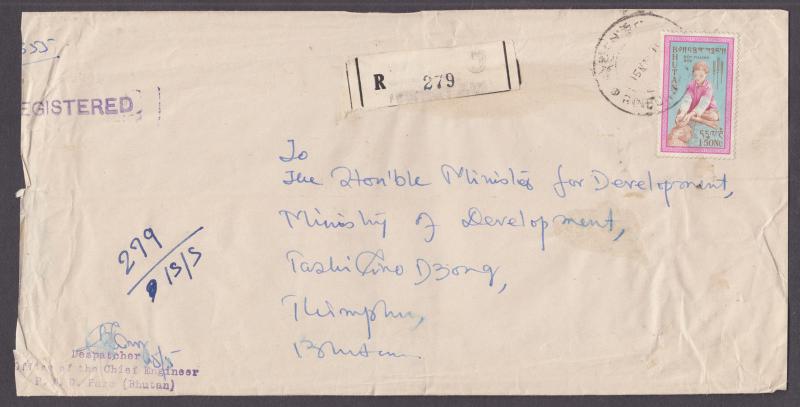 555
EGISTERED
R 279
BHUTAN
1.50NU
To
The Hon'ble Minister for Development,
Ministry of Development,
Tashi Chho Dzong,
Thimphu,
Bhutan
279
15/5
Despatcher
Office of the Chief Engineer
P. W. D. Paro (Bhutan)